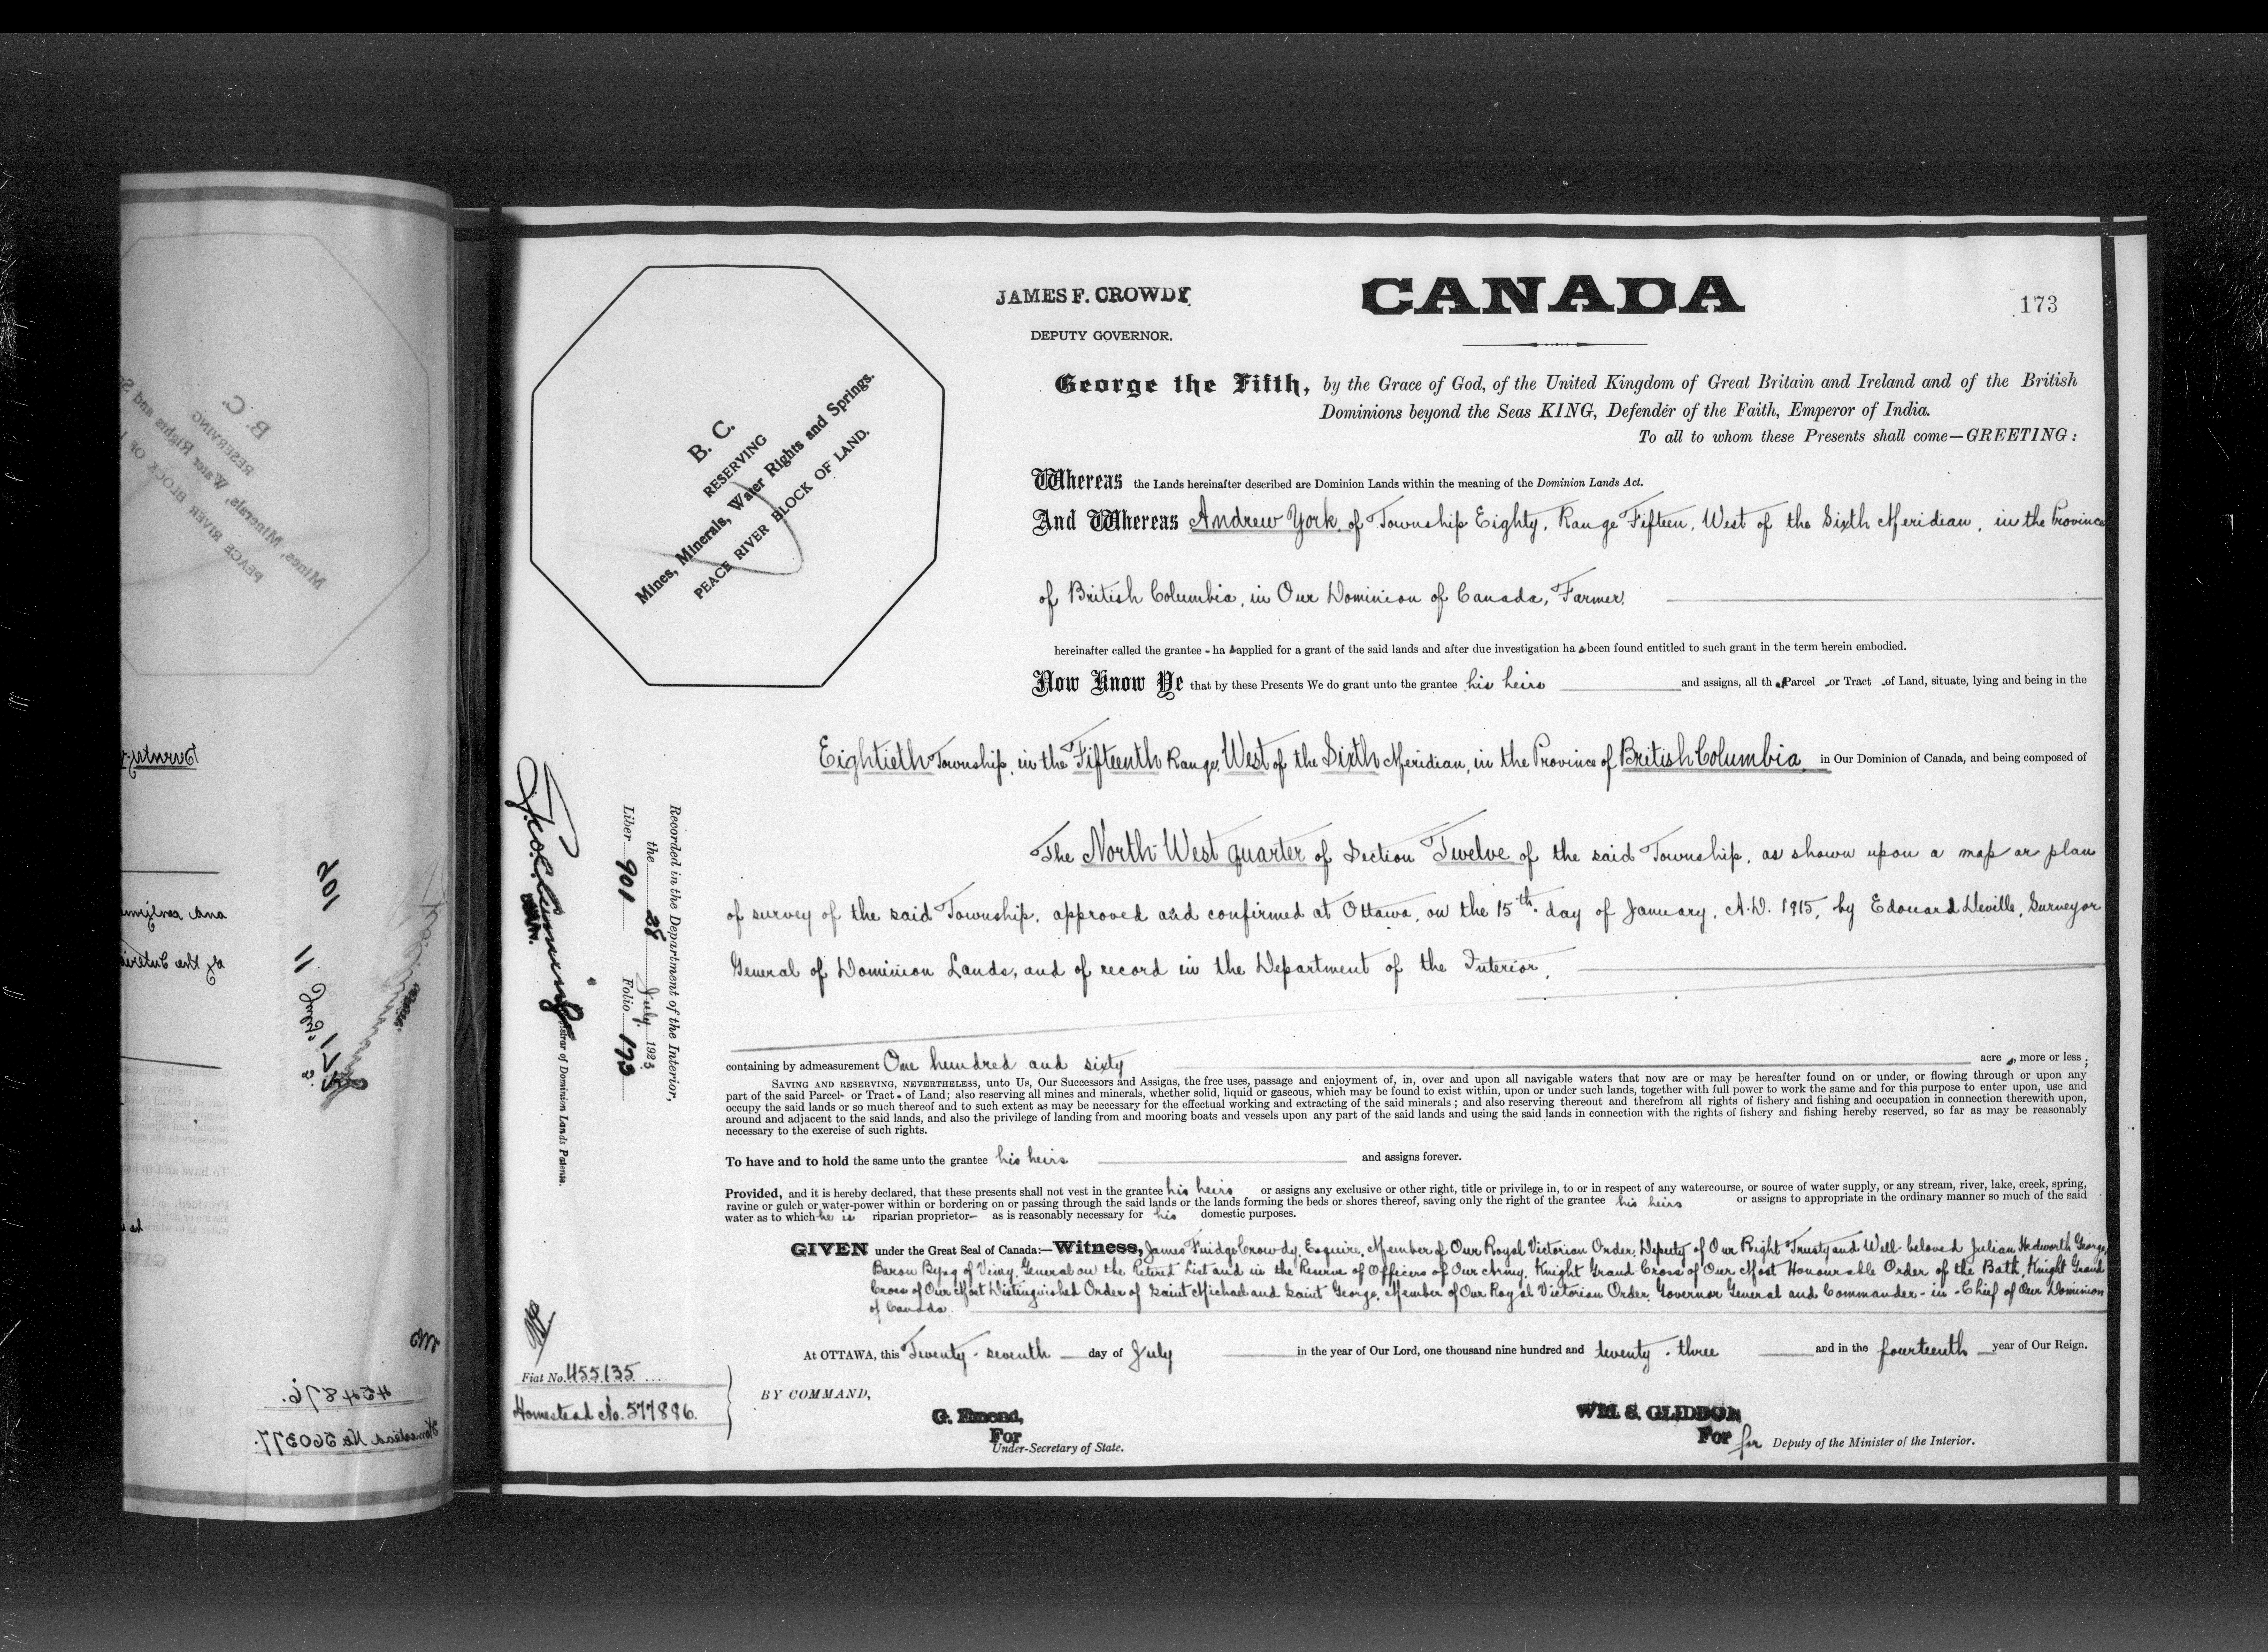 JAMES F. CROWDY
DEPUTY GOVERNOR.
CANADA
173
George the Fifth, by the Grace of God, of the United Kingdom of Great Britain and Ireland and of the British
Dominions beyond the Seas KING, Defender of the Faith, Emperor of India.
To all to whom these Presents shall come—GREETING:
B. C.
RESERVING
Mines, Minerals, Water Rights and Springs.
PEACE RIVER BLOCK OF LAND.
Whereas the Lands hereinafter described are Dominion Lands within the meaning of the Dominion Lands Act.
And Whereas Andrew York, of Township Eighty, Range Fifteen, West of the Sixth Meridian, in the Province
of British Columbia, in Our Dominion of Canada, Farmer,
hereinafter called the grantee - has applied for a grant of the said lands and after due investigation has been found entitled to such grant in the term herein embodied.
Now Know Ye that by these Presents We do grant unto the grantee his heirs and assigns, all that Parcel or Tract of Land, situate, lying and being in the
Eightieth Township, in the Fifteenth Range, West of the Sixth Meridian, in the Province of British Columbia, in Our Dominion of Canada, and being composed of
The North West quarter of Section Twelve of the said Township, as shown upon a map or plan
of survey of the said Township, approved and confirmed at Ottawa, on the 15th day of January, A.D. 1915, by Edouard Deville, Surveyor
General of Dominion Lands, and of record in the Department of the Interior,
containing by admeasurement One hundred and sixty acres, more or less;
SAVING AND RESERVING, NEVERTHELESS, unto Us, Our Successors and Assigns, the free uses, passage and enjoyment of, in, over and upon all navigable waters that now are or may be hereafter found on or under, or flowing through or upon any
part of the said Parcel- or Tract- of Land; also reserving all mines and minerals, whether solid, liquid or gaseous, which may be found to exist within, upon or under such lands, together with full power to work the same and for this purpose to enter upon, use and
occupy the said lands or so much thereof and to such extent as may be necessary for the effectual working and extracting of the said minerals; and also reserving thereout and therefrom all rights of fishery and fishing and occupation in connection therewith upon,
around and adjacent to the said lands, and also the privilege of landing from and mooring boats and vessels upon any part of the said lands and using the said lands in connection with the rights of fishery and fishing hereby reserved, so far as may be reasonably
necessary to the exercise of such rights.
To have and to hold the same unto the grantee his heirs and assigns forever.
Provided, and it is hereby declared, that these presents shall not vest in the grantee his heirs or assigns any exclusive or other right, title or privilege in, to or in respect of any watercourse, or source of water supply, or any stream, river, lake, creek, spring,
ravine or gulch or water-power within or bordering on or passing through the said lands or the lands forming the beds or shores thereof, saving only the right of the grantee his heirs or assigns to appropriate in the ordinary manner so much of the said
water as to which he is riparian proprietor- as is reasonably necessary for his domestic purposes.
GIVEN under the Great Seal of Canada:—Witness, James Fuidge Crowdy, Esquire, Member of Our Royal Victorian Order, Deputy of Our Right Trusty and Well-beloved Julian Hedworth George,
Baron Byng of Vimy, General on the Retired List and in the Reserve of Officers of Our Army, Knight Grand Cross of Our Most Honourable Order of the Bath, Knight Grand
Cross of Our Most Distinguished Order of Saint Michael and Saint George, Member of Our Royal Victorian Order, Governor General and Commander-in-Chief of Our Dominion
of Canada.
At OTTAWA, this Twenty-seventh day of July in the year of Our Lord, one thousand nine hundred and twenty-three and in the fourteenth year of Our Reign.
BY COMMAND,
G. Emond,
For
Under-Secretary of State.
WM. S. GLIDDON
For for Deputy of the Minister of the Interior.
Recorded in the Department of the Interior,
the 28 July 1923
Liber 901 Folio 173
Registrar of Dominion Lands Patents.
Fiat No. 455135
Homestead No. 577886.
B. C.
RESERVING
Mines, Minerals, Water Rights and
PEACE RIVER BLOCK OF
105
11 July
454876.
Homestead No. 560377.